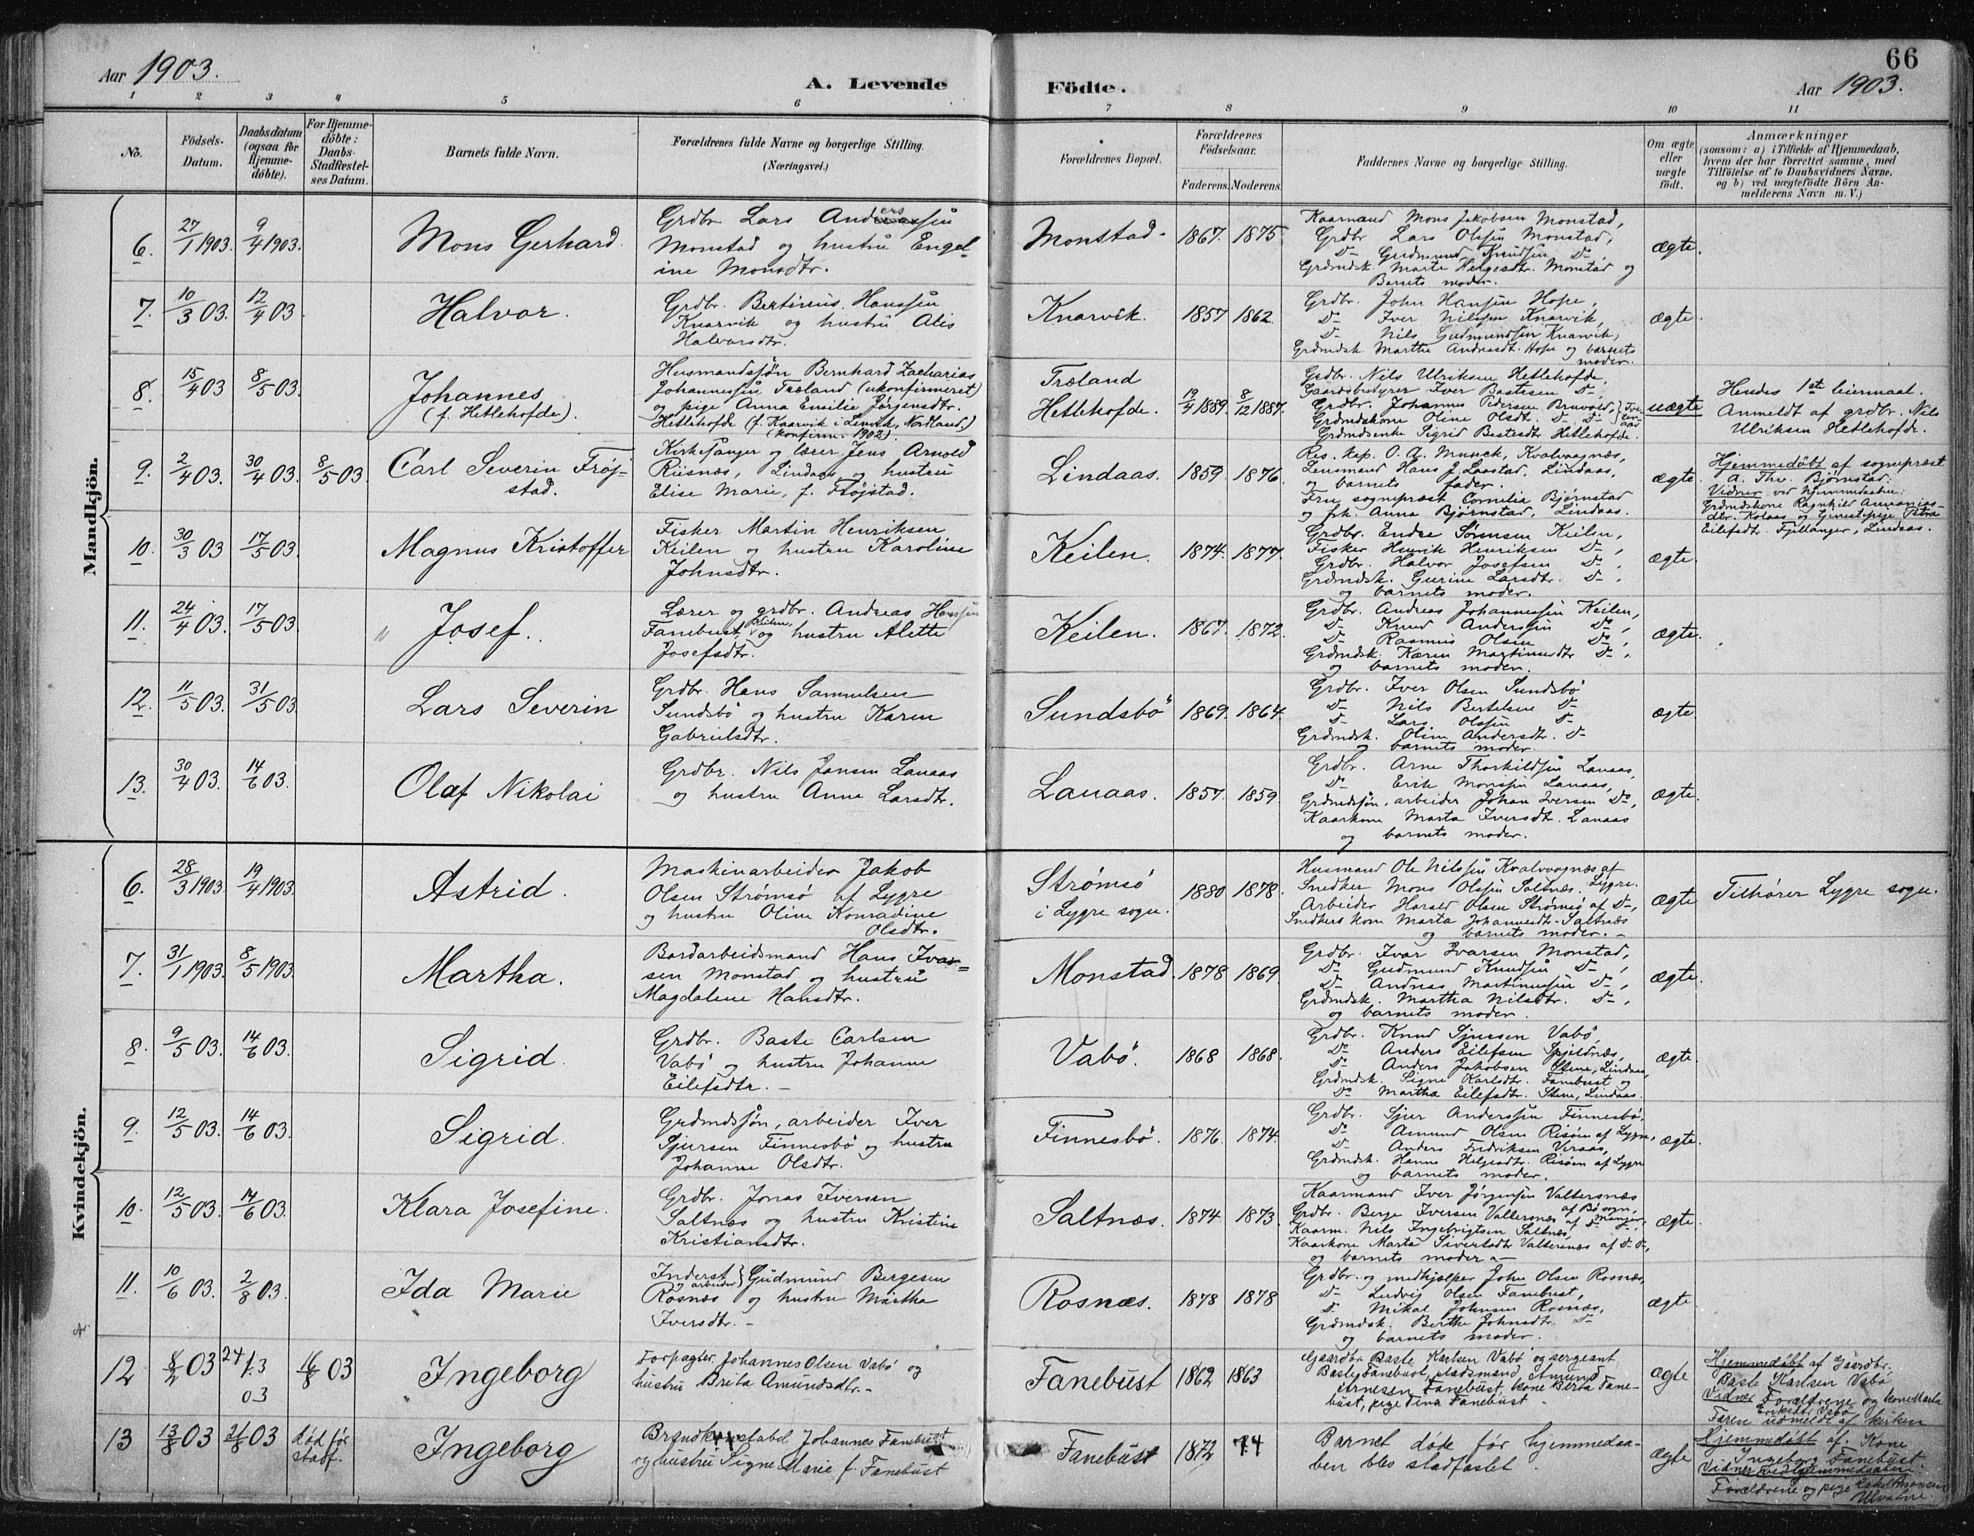 Aar 1903.
A. Levende Födte.
Aar 1903.
66
1 2 3 4 5 6 7 8 9 10 11
No.
Födsels-
Datum.
Daabsdatum
(ogsaa for
Hjemme-
döbte).
For Hjemme-
döbte:
Daabs-
Stadfæstel-
ses Datum.
Barnets fulde Navn.
Forældrenes fulde Navne og borgerlige Stilling.
(Næringsvei.)
Forældrenes Bopæl.
Forældrenes
Födselsaar.
Faderens. Moderens.
Faddernes Navne og borgerlige Stilling.
Om ægte
eller
uægte
födt.
Anmærkninger
(saasom: a) i Tilfælde af Hjemmedaab,
hvem der har forrettet samme, med
Tilföielse af to Daabsvidners Navne,
og b) ved uægtefödte Börn An-
melderens Navn m. V.)
Mandkjön.
6. 27/1 1903. 9/4 1903. Mons Gerhard.
Grdbr Lars Anderssen
Monstad og hustru Engel-
ine Monsdtr.
Monstad. 1867. 1875.
Kaarmand Mons Jakobsen Monstad,
Grdbr Lars Olssen Monstad,
Do Gudmund Knudsen Do
Grdmdsk. Marte Helgesdtr. Monstad og
Barnets moder.
ægte.
7. 10/3 03. 12/4 03 Halvor.
Grdbr. Bertineus Hanssen
Knarvik og hustru Alis
Halvorsdtr.
Knarvik. 1857 1862.
Grdbr. John Hansen Hope,
Do Iver Nilssen Knarvik
Do Nils Gudmundsen Knarvik,
Grdmdsk Marthe Andersdtr. Hope og barnets
moder.
ægte.
8. 15/4 03 8/5 03. Johannes
(f. Hetlehofde).
Husmandssøn Bernhard Zacharias
Johannessen Træland (ukonfirmeret)
og pige Anna Emilie Jørgensdtr.
Hetlehofde (f. Kaarvik i Lenvik, Nordland.)
(konfirm. 1902).
Træland
Hetlehofde. 12/4 1889. 8/12 1887.
Grdbr. Nils Ulriksen Hetlehofde,
Gaardsbestyrer Iver Bastesen Do,
Grdbr. Johannes Pedersen
Grdmdskone Oline Olsdt. Do Do
Grdmdsenke Sigrid Bastesdtr Hetlehofde.
uægte
Hendes 1ste leiermaal.
Anmeldt af grdbr. Nils
Ulriksen Hetlehofde.
9. 2/4 03. 30/4 03. 8/5 03. Carl Severin Frøj-
stad.
Kirkesanger og lærer Jens Arnold
Riisnæs, Lindaas og hustru
Elise Marie, f. Frøjstad.
Lindaas. 1859 1876.
Res. kap. O. A. Munck, Kvalvaagnæs,
Lensmand Hans J. Laastad, Lindaas,
og barnets fader.
Fru sognepræst Cornelia Bjørnstad
og frk. Anna Bjørnstad, Lindaas.
ægte.
Hjemmedøbt af sognepræst
A. Thv. Bjørnstad.
Vidner ved hjemmedaaben:
Grdmdskone Ragnhild Ammanias-
dtr. Kolaas og tjenestepige Petra
Eilefsdt Fjellanger, Lindaas.
10. 30/3 03 17/5 03. Magnus Kristoffer
Fisker Martin Henriksen
Keilen og hustru Karoline
Johnsdtr.
Keilen. 1874. 1877.
Grdbr. Endre Sørensen Keilen,
Fisker Henrik Henriksen Do,
Grdbr. Halvor Josefsen Do,
Grdmdsk. Gurine Larsdtr. Do,
og barnets moder.
ægte.
11. 24/4 03. 17/5 03. Josef.
Lærer og grdbr. Andreas Hanssen
Fanebust, Keilen, og hustru Alette
Josefsdtr.
Keilen. 1867. 1872.
Grdbr. Andreas Johannessen Keilen,
Do Knud Anderssen Do,
Do Rasmus Olsen Do,
Grdmdsk. Karen Martinusdtr Do.
og barnets moder.
ægte.
12. 11/5 03. 31/5 03. Lars Severin
Grdbr. Hans Samuelsen
Sundsbö og hustru Karen
Gabrielsdtr.
Sundsbö 1869. 1864.
Grdbr. Iver Olsen Sundsbö
Do Nils Bertelsen Do
Do Lars Olssen Do
Grdmdsk. Oline Andersdtr. Do
og barnets moder.
ægte.
13. 30/4 03. 14/6 03. Olaf Nikolai
Grdbr. Nils Jansen Lauaas
og hustru Anne Larsdtr.
Lauaas. 1857. 1859.
Grdbr. Arne Thorkildsen Lauaas,
Do Erik Monssen Lauaas,
Grdmdssøn, arbeider Johan Iversen Do,
Kaarkone Marta Iversdtr. Lauaas
og barnets moder.
ægte.
Kvindekjön.
6. 28/3 1903. 19/4 1903. Astrid.
Maskinarbeider Jakob
Olsen Strømsø af Lygre
og hustru Oline Konradine
Olsdtr.
Strømsø
i Lygre sogn. 1880 1878.
Husmand Ole Nilssen Kvalvaagnæs af
Snedker Mons Olssen Saltnæs. Lygre.
Arbeider Harald Olsen Strømsø af Do,
Snedkers kone Marta Johannesdt. Saltnæs
og barnets moder.
ægte.
Tilhører Lygre sogn.
7. 31/1 1903. 8/5 1903. Martha.
Bordarbeidsmand Hans Ivar-
sen Monstad og hustru
Magdalene Hansdtr.
Monstad. 1878. 1869.
Grdbr. Ivar Ivarsen Monstad,
Do Gudmund Knudsen Do,
Do Andreas Martinussen Do,
Grdmdsk. Martha Nilsdtr. Do,
og barnets moder.
ægte.
8. 9/5 03. 14/6 03. Sigrid.
Grdbr. Baste Carlsen
Vabø og hustru Johanne
Eilefsdtr.
Vabø. 1868 1868.
Grdbr. Knud Sjursen Vabø,
Do Anders Eilefsen Spjeldnæs,
Do Anders Jakobsen Stene, Lindaas,
Grdmdsk. Signe Karlsdtr. Fanebust og
Do Martha Eilefsdtr. Stene, Lindaas.
ægte.
9. 12/5 03. 14/6 03. Sigrid.
Grdmdssøn, arbeider Iver
Sjursen Finnesbø og hustru
Johanne Olsdtr.
Finnesbø. 1876. 1874.
Grdbr. Sjur Anderssen Finnesbø,
Do Amund Olsen Risøen af Lygre,
Do Anders Fredriksen Viraas,
Grdmdsk. Hanne Helgesdtr. Risøen af Lygre
og barnets moder.
ægte.
10. 12/5 03. 14/6 03. Klara Josefine.
Grdbr. Jonas Iversen
Saltnæs og hustru Kristine
Kristiansdtr.
Saltnæs. 1874. 1873.
Kaarmand Iver Jørgensen Valtersnæs
Grdbr. Berge Iversen Valtersnæs af Do
Kaarm. Nils Ingebrigtsen Saltnæs,
Kaarkone Marta Sivertsdtr Valtersnæs af Do Do,
og barnets moder.
ægte.
11. 10/6 03. 2/8 03. Ida Marie
Inderst arbeider Gudmund Bergesen
Rosnæs og hustru Martha
Iversdtr.
Rosnæs. 1878 1878
Grdbr. og medhjælper John Olsen Rosnæs,
Do Ludvig Olsen Fanebust,
Do Mikal Johnsen Rosnæs,
Grdmdsk. Berthe Johnsdtr. Do
og barnets moder.
ægte
12 8/2 03 24/3 03 16/8 03 Ingeborg
Forpagter Johannes Olsen Vabø og
hustru Brita Amundsdtr.
Fanebust 1862 1863
Gaardbr. Baste Karlsen Vabø og sergeant
Baste Fanebust, stadsmand Amund
Arnesen Fanebust, kone Berta Fane-
bust, pige Tina Fanebust.
ægte
Hjemmedøbt af Gaardbr.
Baste Karlsen Vabø
Vidner Forældrene og kone Marta
Eriksdtr. Vabø
Faren udmeldt af kirken
13 13/8 03 03 død før
stadf.
Ingeborg
Brandkonstabel Johannes Fanebust
og hustru Signe Marie f. Fanebust
Fanebust 1872 74
Barnet døde før hjemmedaa-
ben blev stadfæstet.
ægte
Hjemmedøbt af Kone
Ingeborg Fanebust.
Vidner ved hjemmedaaben:
Forældrene og pige